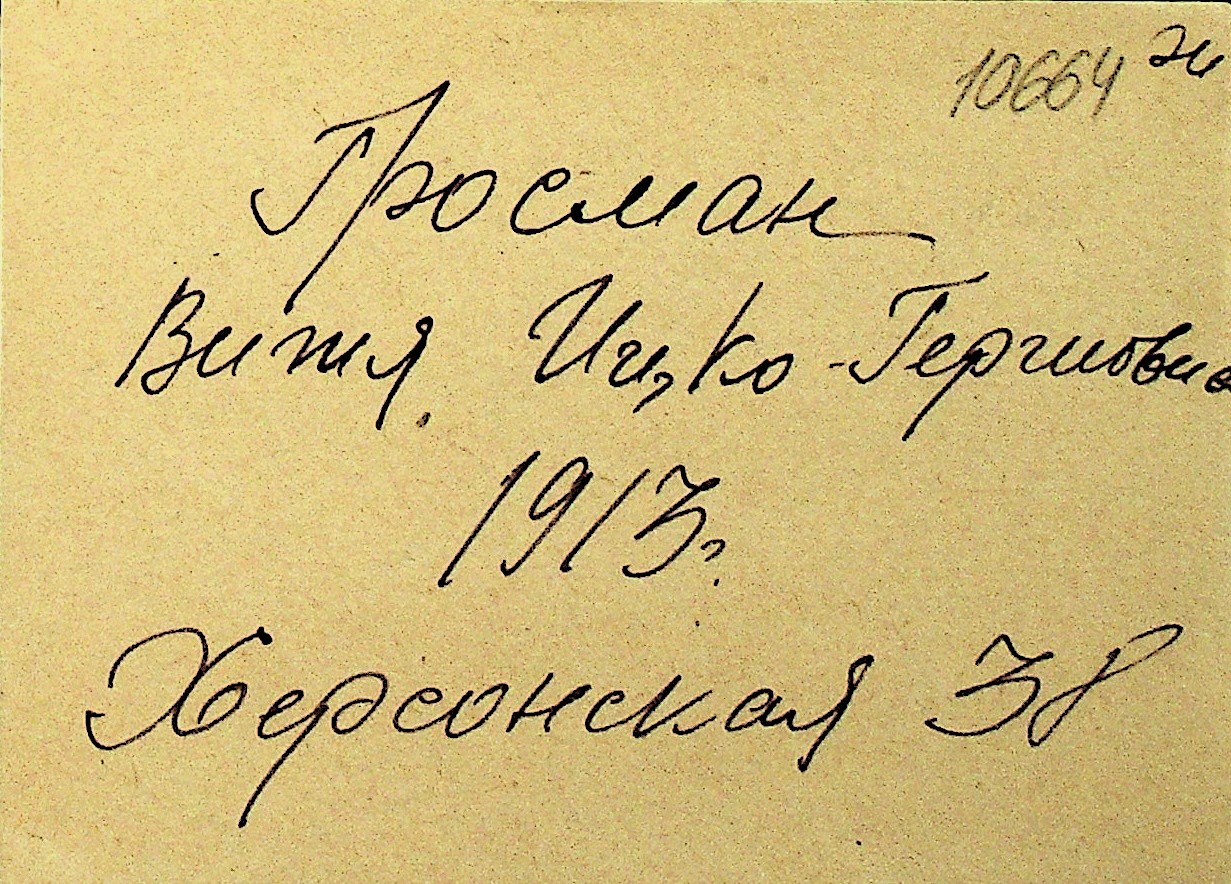 10664 эи
Гросман
Витя Ицко-Гершови
1913г.
Херсонская 38